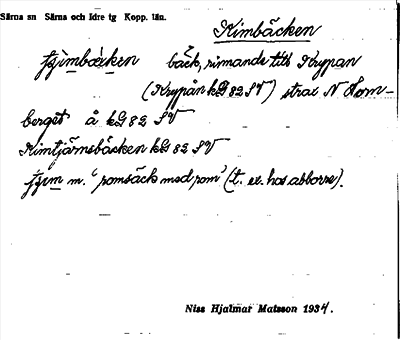 Särna sn Särna och Idre tg Kopp. län.
Kimbäcken
bäck, rinnande till Krypan
(Krypån kG 82 SV) strax N Hom-
berget å kG 82 SV
Kimtjärnsbäcken kG 82 SV
m. "romsäck med rom" (t. ex. hos abborre).
Niss Hjalmar Matsson 1934.